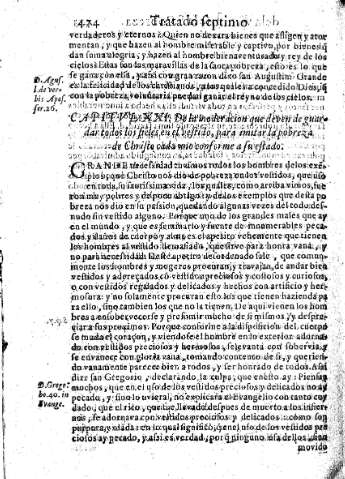 424 Tratado septimo
verdaderos y eternos? Quien no dexara bienes que afligen y ator
mentan, y que hazen al hombre miserable y captivo, por bienes q̃
dan suma alegria, y hazen al hombre bienaventurado y rey de los
cielos? Estas son las maravillas de la sancta pobreza, estos es lo que
se gana con ella, y assi con gran razon dixo san Augustin: Grande
es la felicidad de los christianos, a los quales ha concedido Dios, q̃
con la pobreza voluntaria puedan ganar el reyno de los cielos.
D. Agus.
l. de ver-
bis Apos.
ser. 28.
CAPITVLO XXI. De la moderacion que deven de guar
dar todos los fieles en el vestido, para imitar la pobreza
de Christo cada vno conforme a su estado.
GRANDE necesidad tenemos todos los hombres de los exem
plos, que Christo nos dio de pobreza en los vestidos, que uso
en toda su sanctissima vida, los quales, como arriba vimos, fue
ron muy pobres y de poco abrigo, y de los exemplos que desta po
breza nos dio en su passion, quedando algunas vezes del todo des-
nudo sin vestido alguno. Porque uno de los grandes males que ay
en el mundo, y que es seminario y fuente de innumerables peca-
dos y daños de cuerpo y alma, es el apetito vehemente que tienen
los hombres al vestido demasiado, que sirve para honra vana, y
no para necesidad. Deste apetito desordenado sale, que comun-
mente los hombres y mugeres procuran, y travajan, de andar bien
vestidos y adereçados cõ vestidos preciosos y costosos y curiosos,
o con vestidos regalados y delicados y hechos con artificio y her-
mosura: y no solamente procuran esto los que tienen hazienda pa
ra ello, sino tambien los que no la tienen. De aqui vienen los hom
bres a ensobervecerse y presumir mucho de si mismos, y despre-
ciar a sus proximos. Porque conforme a la disposicion del cuerpo
se muda el coraçon, y viendose el hombre en lo exterior adorna-
do con vestidos preciosos y hermosos, se levanta con sobervia, y
se envanece con gloria vana, tomando contento de si, y querien-
do vanamente parecer bien a todos, y ser honrado de todos. Assi
dize san Gregorio, declarando la culpa, que en esto ay: Piensan
muchos, que en el uso de los vestidos preciosos y delicados no ay
pecado, y si no lo uviera, no explicara el Evangelio con tanto cuy
dado, que el rico, que fue llevado despues de muerto a los infier-
nos, se adornava con vestidos preciosos y delicados como son
purpura, y olanda: en lo qual significò, que en el uso de los vestidos pre
ciosos ay pecado, y assi es verdad, porq̃ ninguno usa dellos, sino
movido
D. Grego.
ho. 40. in
Evange.